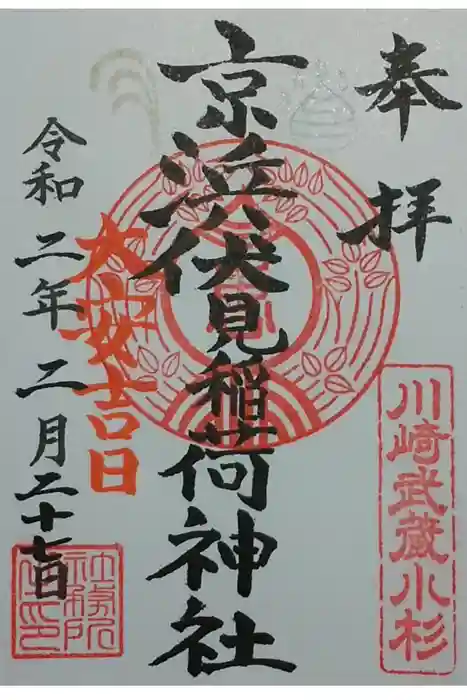 奉拝
川崎武蔵小杉
京浜伏見稲荷神社
大安吉日
令和二年二月二十七日
社務所